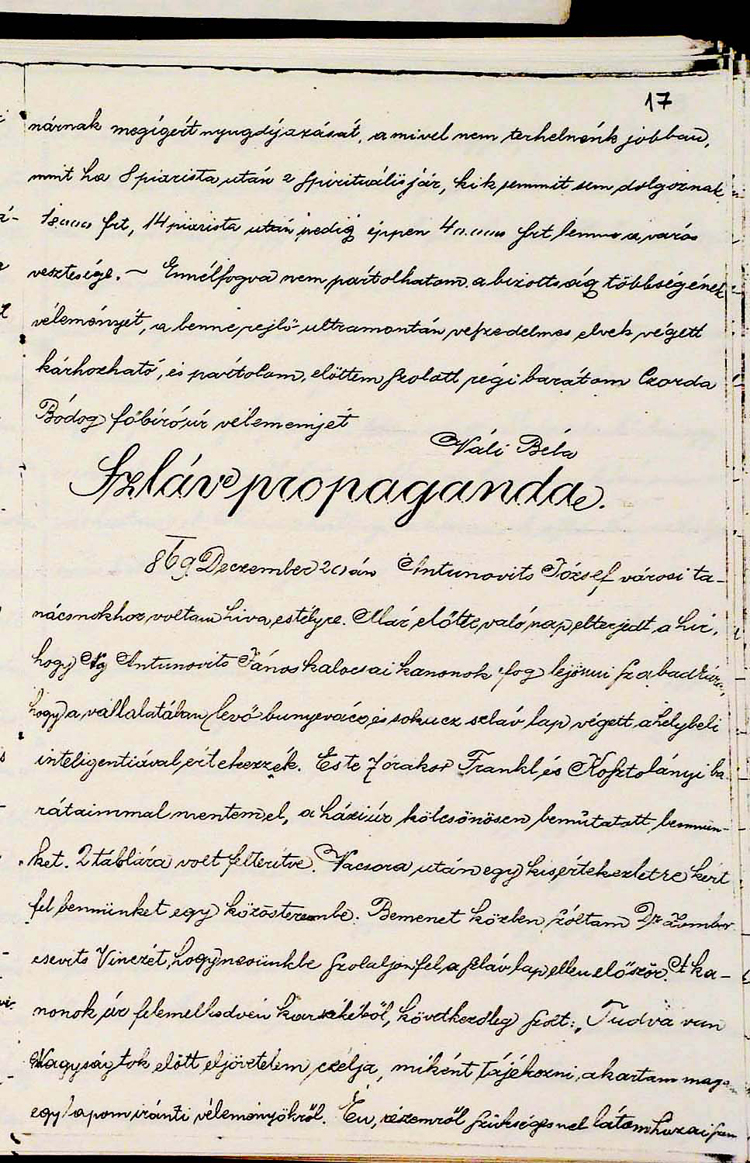 17
nárnak megígért nyugdíjazását, a mivel nem terhelnénk jobban,
mint ha 8 piarista után 2 spirituális jár, kik semmit sem dolgoznak
18000 frt, 14 piarista után pedig éppen 40.000 frt lenne a város
vesztesége. – Ennélfogva nem pártolhatom a bizottság többségének
véleményét, a benne rejlő ultramontán veszedelmes elvek végett
kárhozható, és pártolom, előttem szolott régi barátom Czorda
Bódog főbíró úr véleményét
Váli Béla
Szláv propaganda.
869 Deczember 20án Antunovits József városi ta-
nácsnokhoz voltam híva estélyre. Már előtte való nap elterjedt a hír,
hogy Antunovits János kalocsai kanonok fog lejönni Szabadkára,
hogy a vállalatában levő bunyevácz és sokacz szláv lap végett a helybeli
inteligentiával értekezzék. Este 7 órakor Frankl és Kosztolányi ba-
rátaimmal mentem el, a házi úr kölcsönösen bemutatott bennün-
ket. 2 táblára volt felterítve. Vacsora után egy kis értekezletre kért
fel bennünket egy közösterembe. Bemenet közben szóltam Dr Zombor
csevits Vinczét, hogy nevünkbe szolaljon fel a szláv lap ellen először. A ka-
nonok úr felemelkedvén karszékéből, következőleg szolt: „Tudva van
Nagyságtok előtt eljövetelem czélja, miként tájékozni akartam mag-
egy lapom iránti véleményökről. Én, részemről szükségesnek látom hazai